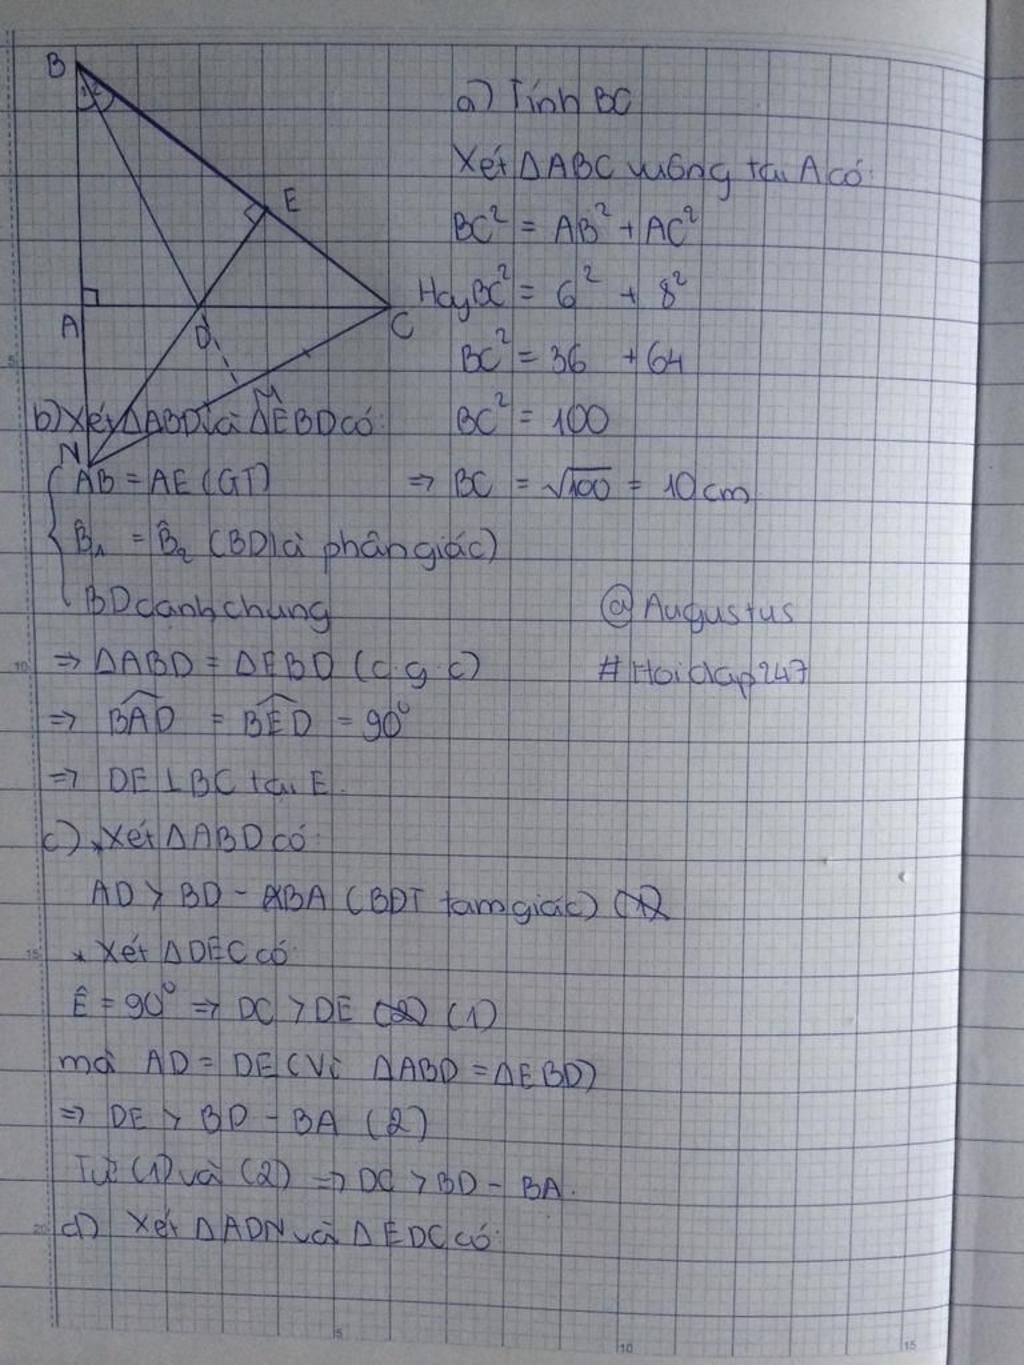 B
E
A
D
C
M
N
a) Tính BC
Xét ΔABC vuông tại A có:
BC² = AB² + AC²
Hay BC² = 6² + 8²
BC² = 36 + 64
BC² = 100
⇒ BC = √100 = 10cm
b) Xét ΔABD và ΔEBD có:
AB = AE (GT)
B̂₁ = B̂₂ (BD là phân giác)
BD cạnh chung
@Augustus
⇒ ΔABD = ΔEBD (c.g.c)
#Hoidap247
⇒ B̂AD = B̂ED = 90°
⇒ DE ⊥ BC tại E.
c) * Xét ΔABD có:
AD > BD - BA (BĐT tam giác)
* Xét ΔDEC có:
Ê = 90° ⇒ DC > DE (1)
mà AD = DE (Vì ΔABD = ΔEBD)
⇒ DE > BD - BA (2)
Từ (1) và (2) ⇒ DC > BD - BA.
d) Xét ΔADN và ΔEDC có:
5
10
15
20
5
10
15